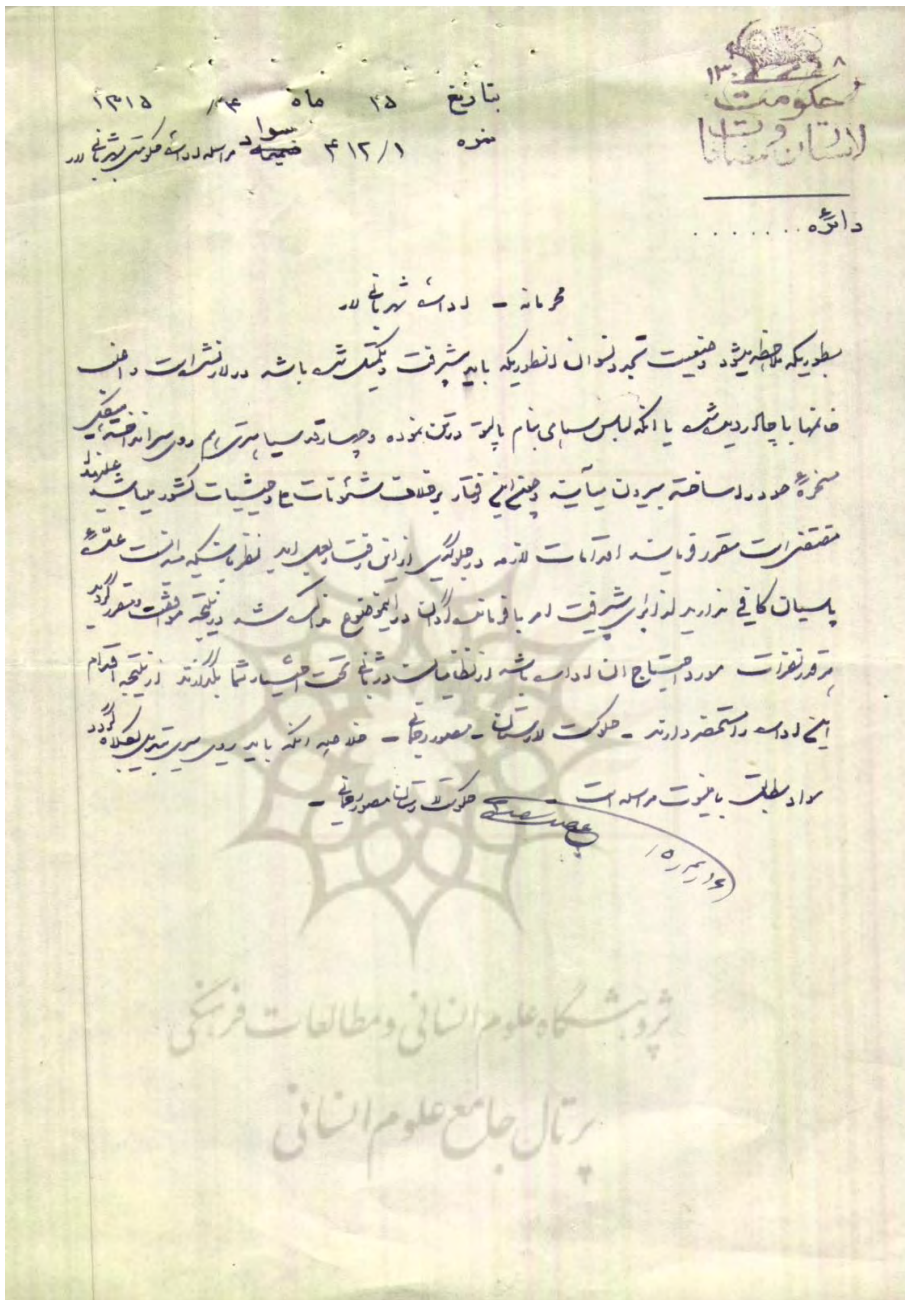 ۱۳۰۸
حکومت
لارستان و مضافات
دائره . . . . . . .
بتاریخ ۲۵ ماه ۴/ ۱۳۱۵
نمره ۴۱۲/۱ ضمیمه سواد مراسله اداره حکومتی بشهربانی لار
محرمانه - اداره شهربانی لار
بطوریکه ملاحظه میشود وضعیت تجدد نسوان انطوریکه باید پیشرفت باشد در لار نشده است و اغلب
خانمها با چادر دیده شده یا آنکه لباس سیاهی بنام پالتو در تن نموده و چهارقد سیاهتری هم روی سر انداخته
مسخره خود را ساخته بیرون میآیند و چون این رفتار برخلاف شئونات و حیثیات کشور میباشد علیهذا
مقتضی است مقرر فرمایند اقدامات لازمه در جلوگیری از این رفتار بعمل اید نظر باینکه ممکن است عده
پاسبان کافی ندارید لذا برای پیشرفت امر با فرمانده گردان در اینموضوع مذاکره شد در نتیجه موافقت و مقرر گردید
هر قدر نفرات مورد احتیاج ان اداره باشد از نظامیان تحت اختیار شما بگذارند از نتیجه اقدام
این اداره را مستحضر دارند - حکومت لارستان - منصور رحمانی - خلاصه انکه باید روسری تبدیل بکلاه گردد
سواد مطابق با مراسله است حکومت لارستان منصور رحمانی -
پژوهشگاه علوم انسانی و مطالعات فرهنگی
پرتال جامع علوم انسانی